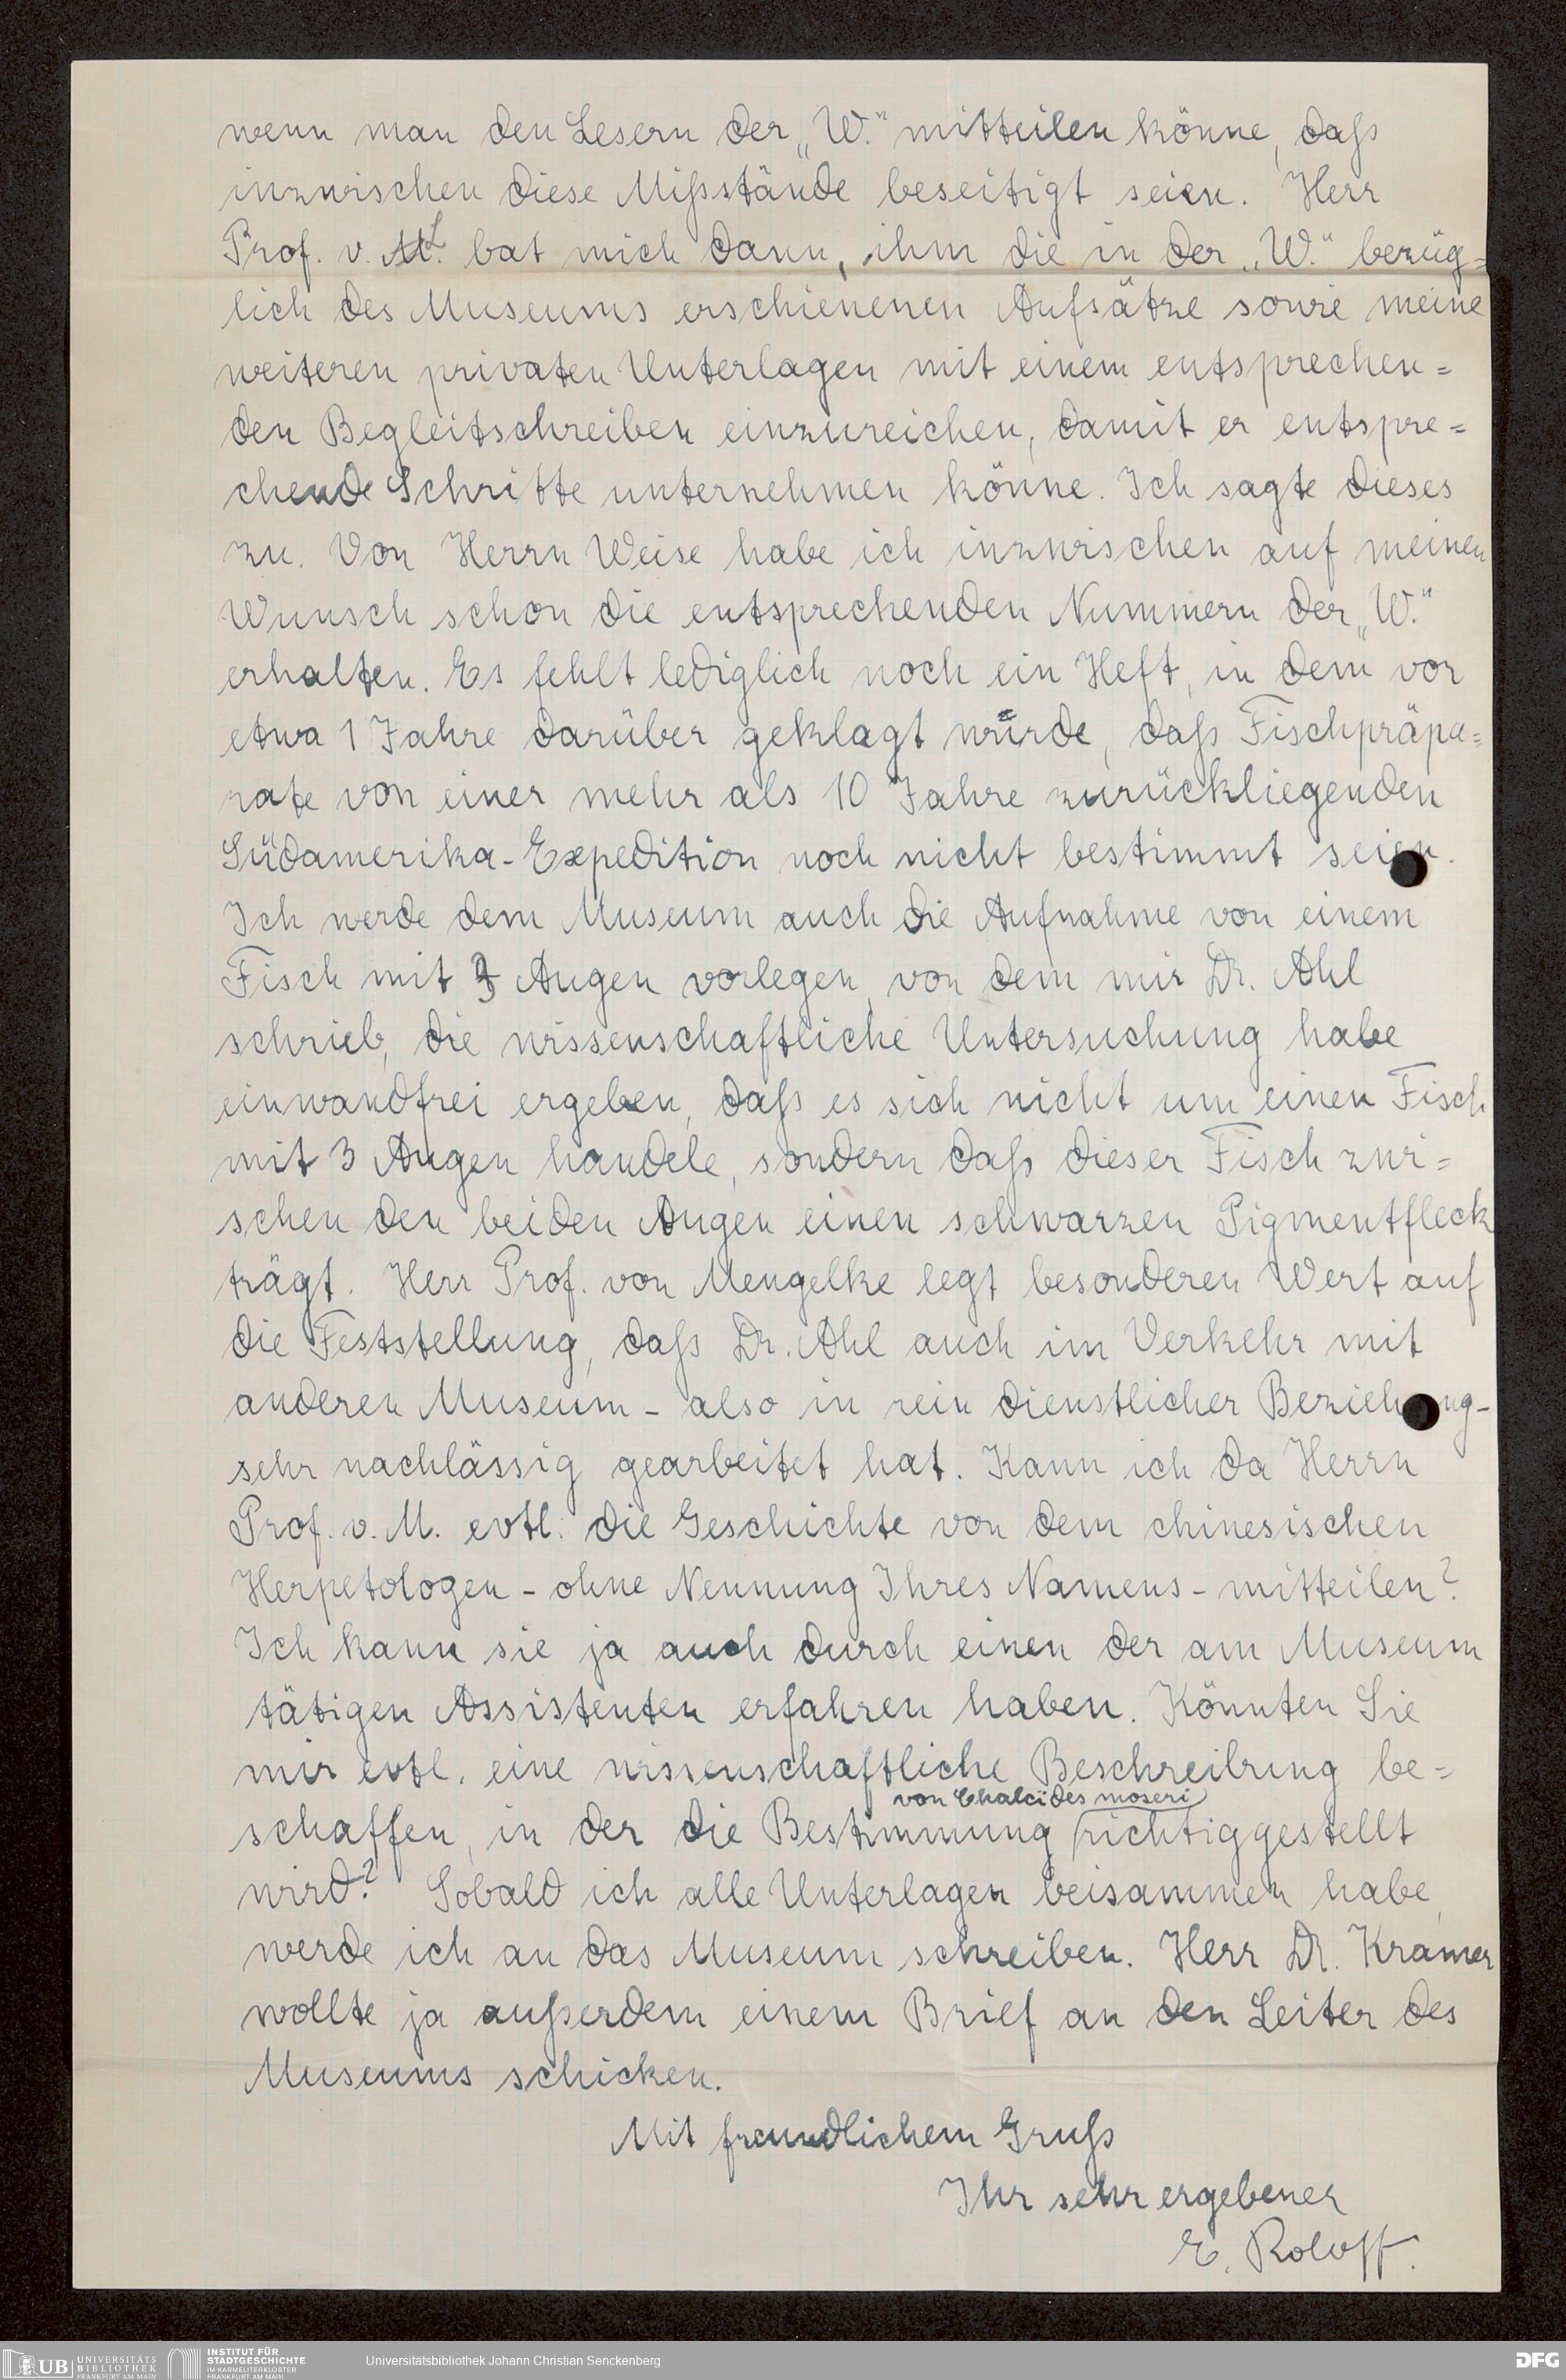 wenn man den Lesern der „W.“ mitteilen könne, daß
inzwischen diese Mißstände beseitigt seien. Herr
Prof. v. M. bat mich dann, ihm die in der „W.“ bezüg=
lich des Museums erschienenen Aufsätze sowie meine
weiteren privaten Unterlagen mit einem entsprechen=
den Begleitschreiben einzureichen, damit er entspre=
chende Schritte unternehmen könne. Ich sagte dieses
zu. Von Herrn Weise habe ich inzwischen auf meinen
Wunsch schon die entsprechenden Nummern der „W.“
erhalten. Es fehlt lediglich noch ein Heft, in dem vor
etwa 1 Jahre darüber geklagt wurde, daß Fischpräpa=
rate von einer mehr als 10 Jahre zurückliegenden
Südamerika-Expedition noch nicht bestimmt seien.
Ich werde dem Museum auch die Aufnahme von einem
Fisch mit 3 Augen vorlegen, von dem mir Dr. Ahl
schrieb, die wissenschaftliche Untersuchung habe
einwandfrei ergeben, daß es sich nicht um einen Fisch
mit 3 Augen handele, sondern daß dieser Fisch zwi=
schen den beiden Augen einen schwarzen Pigmentfleck
trägt. Herr Prof. von Mengelke legt besonderen Wert auf
die Feststellung, daß Dr. Ahl auch im Verkehr mit
anderen Museum - also in rein dienstlicher Beziehung-
sehr nachlässig gearbeitet hat. Kann ich da Herrn
Prof. v. M. evtl. die Geschichte von dem chinesischen
Herpetologen - ohne Nennung Ihres Namens - mitteilen?
Ich kann sie ja auch durch einen der am Museum
tätigen Assistenten erfahren haben. Könnten Sie
mir evtl. eine wissenschaftliche Beschreibung be=
von Chalcides moseri
schaffen, in der die Bestimmung richtiggestellt
wird? Sobald ich alle Unterlagen beisammen habe,
werde ich an das Museum schreiben. Herr Dr. Kramer
wollte ja außerdem einem Brief an den Leiter des
Museums schicken.
Mit freundlichem Gruß
Ihr sehr ergebener
E. Roloff.
UB UNIVERSITÄTS
BIBLIOTHEK
FRANKFURT AM MAIN
INSTITUT FÜR
STADTGESCHICHTE
IM KARMELITERKLOSTER
FRANKFURT AM MAIN
Universitätsbibliothek Johann Christian Senckenberg
DFG